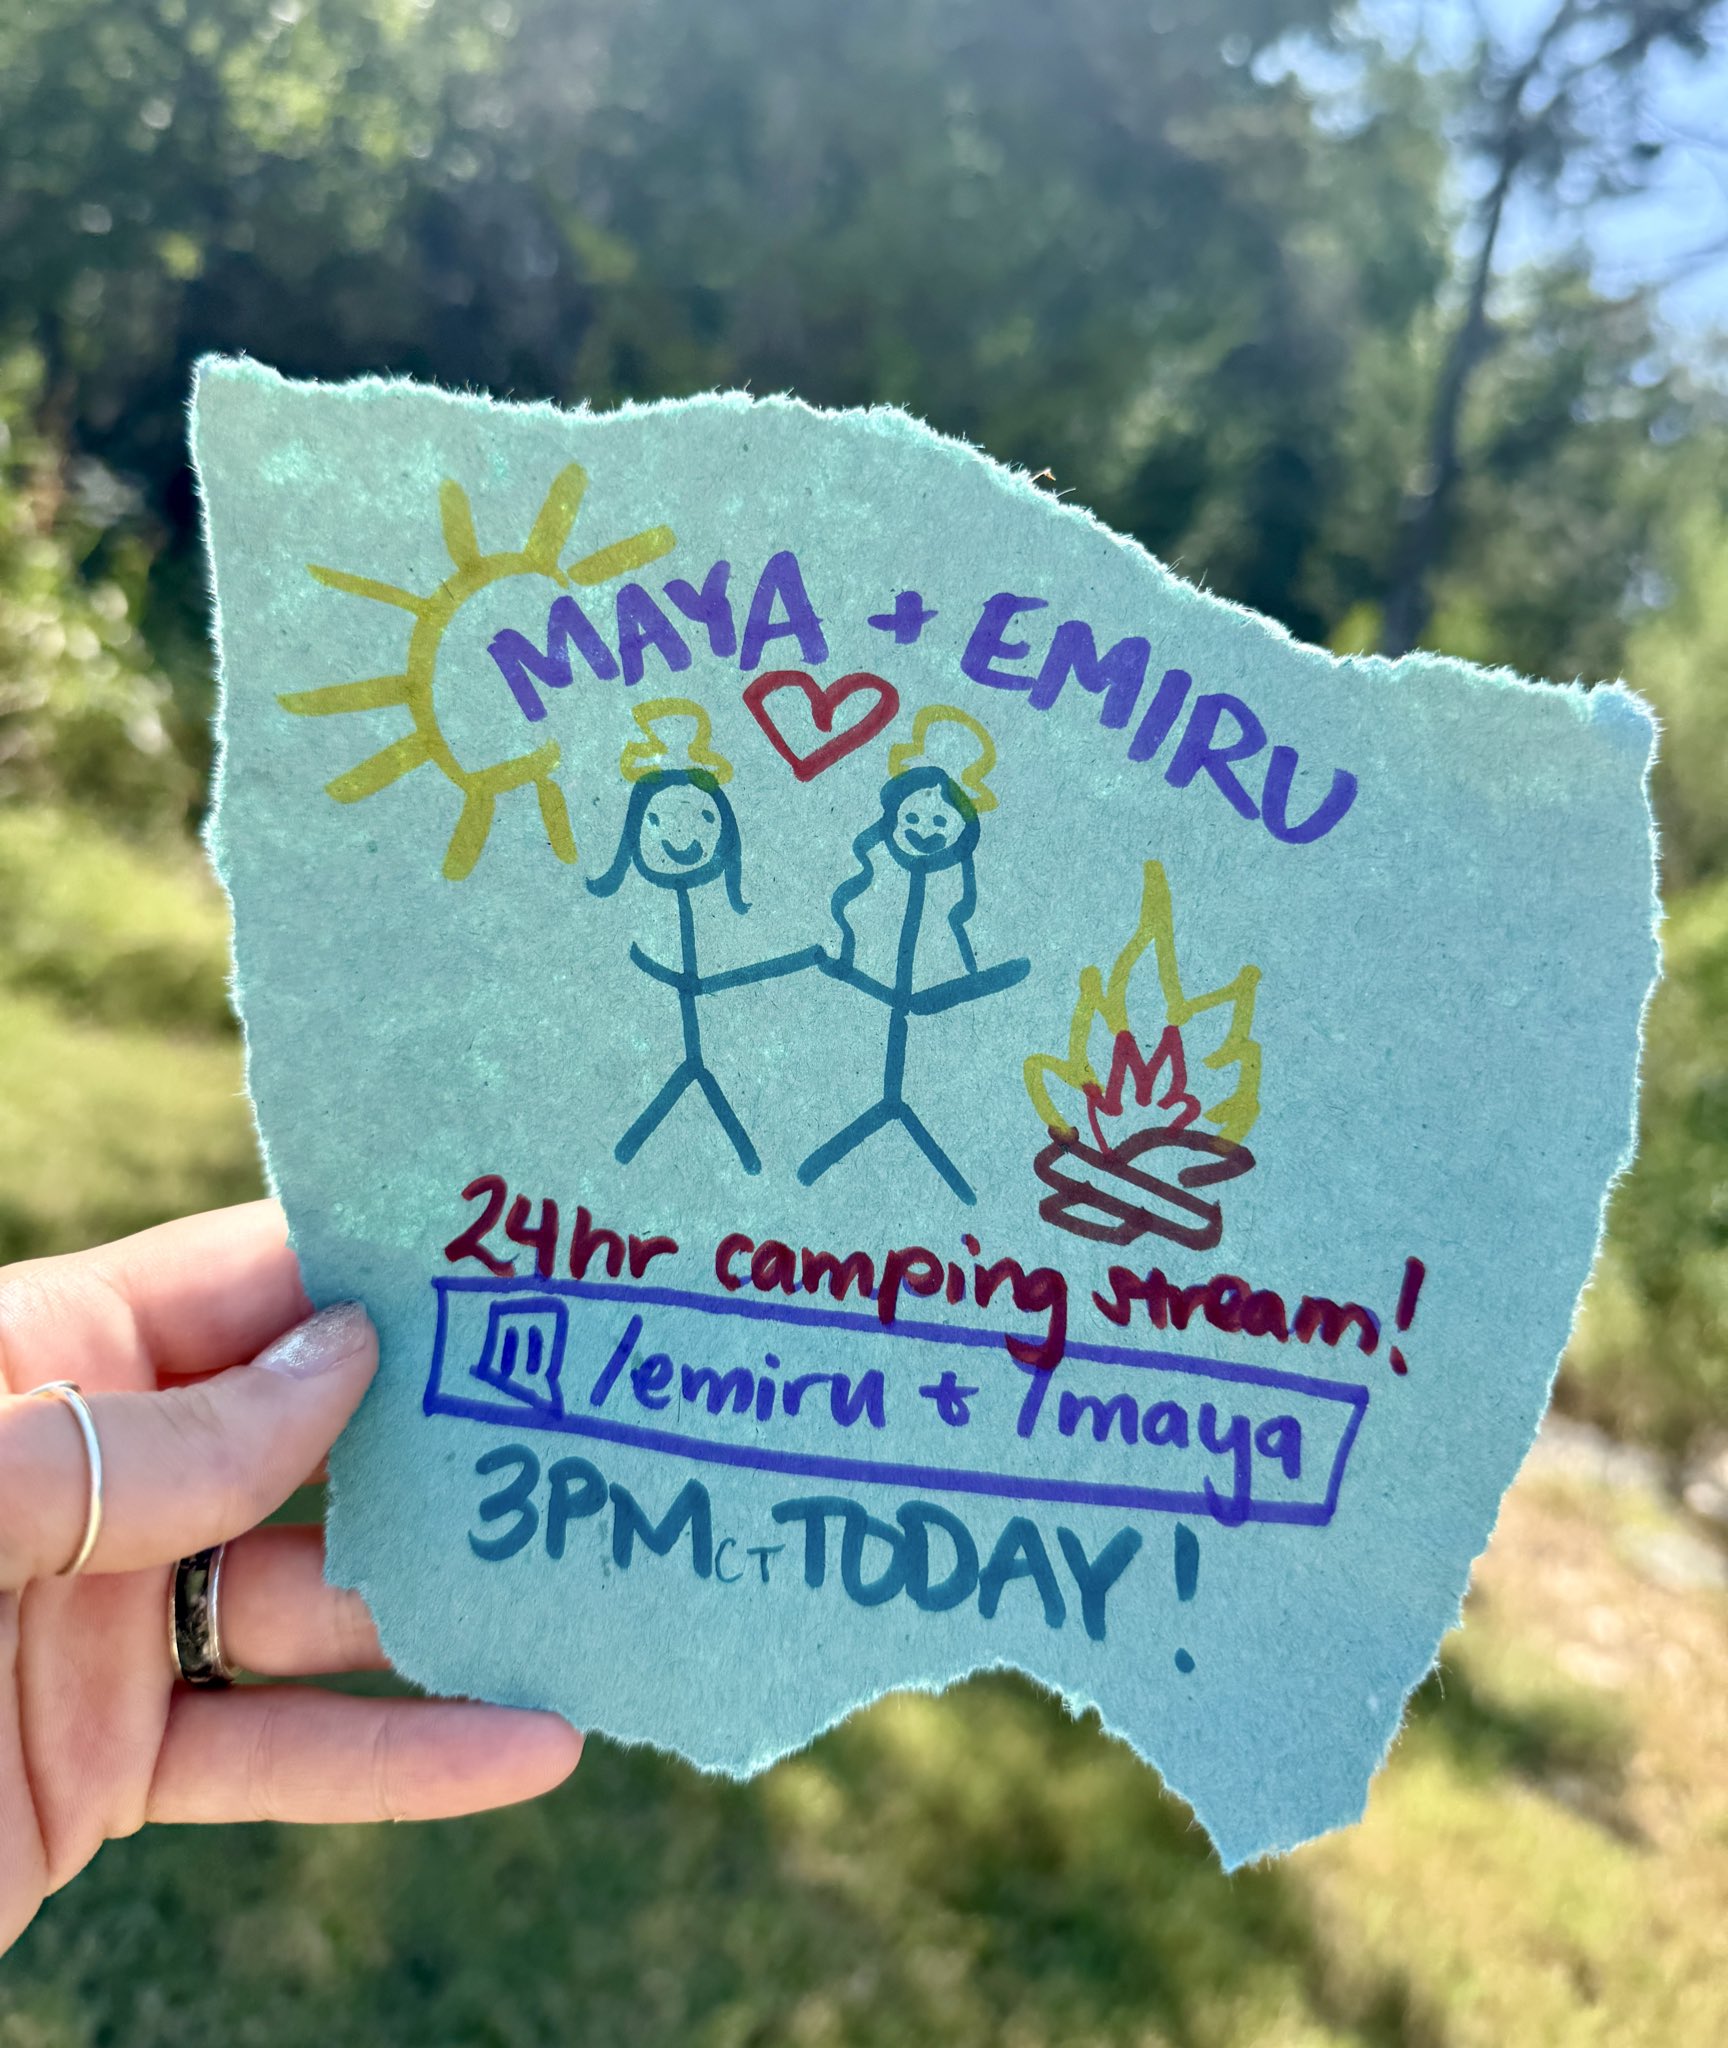 MAYA + EMIRU
24hr camping stream!
/emiru + /maya
3PM CT TODAY!